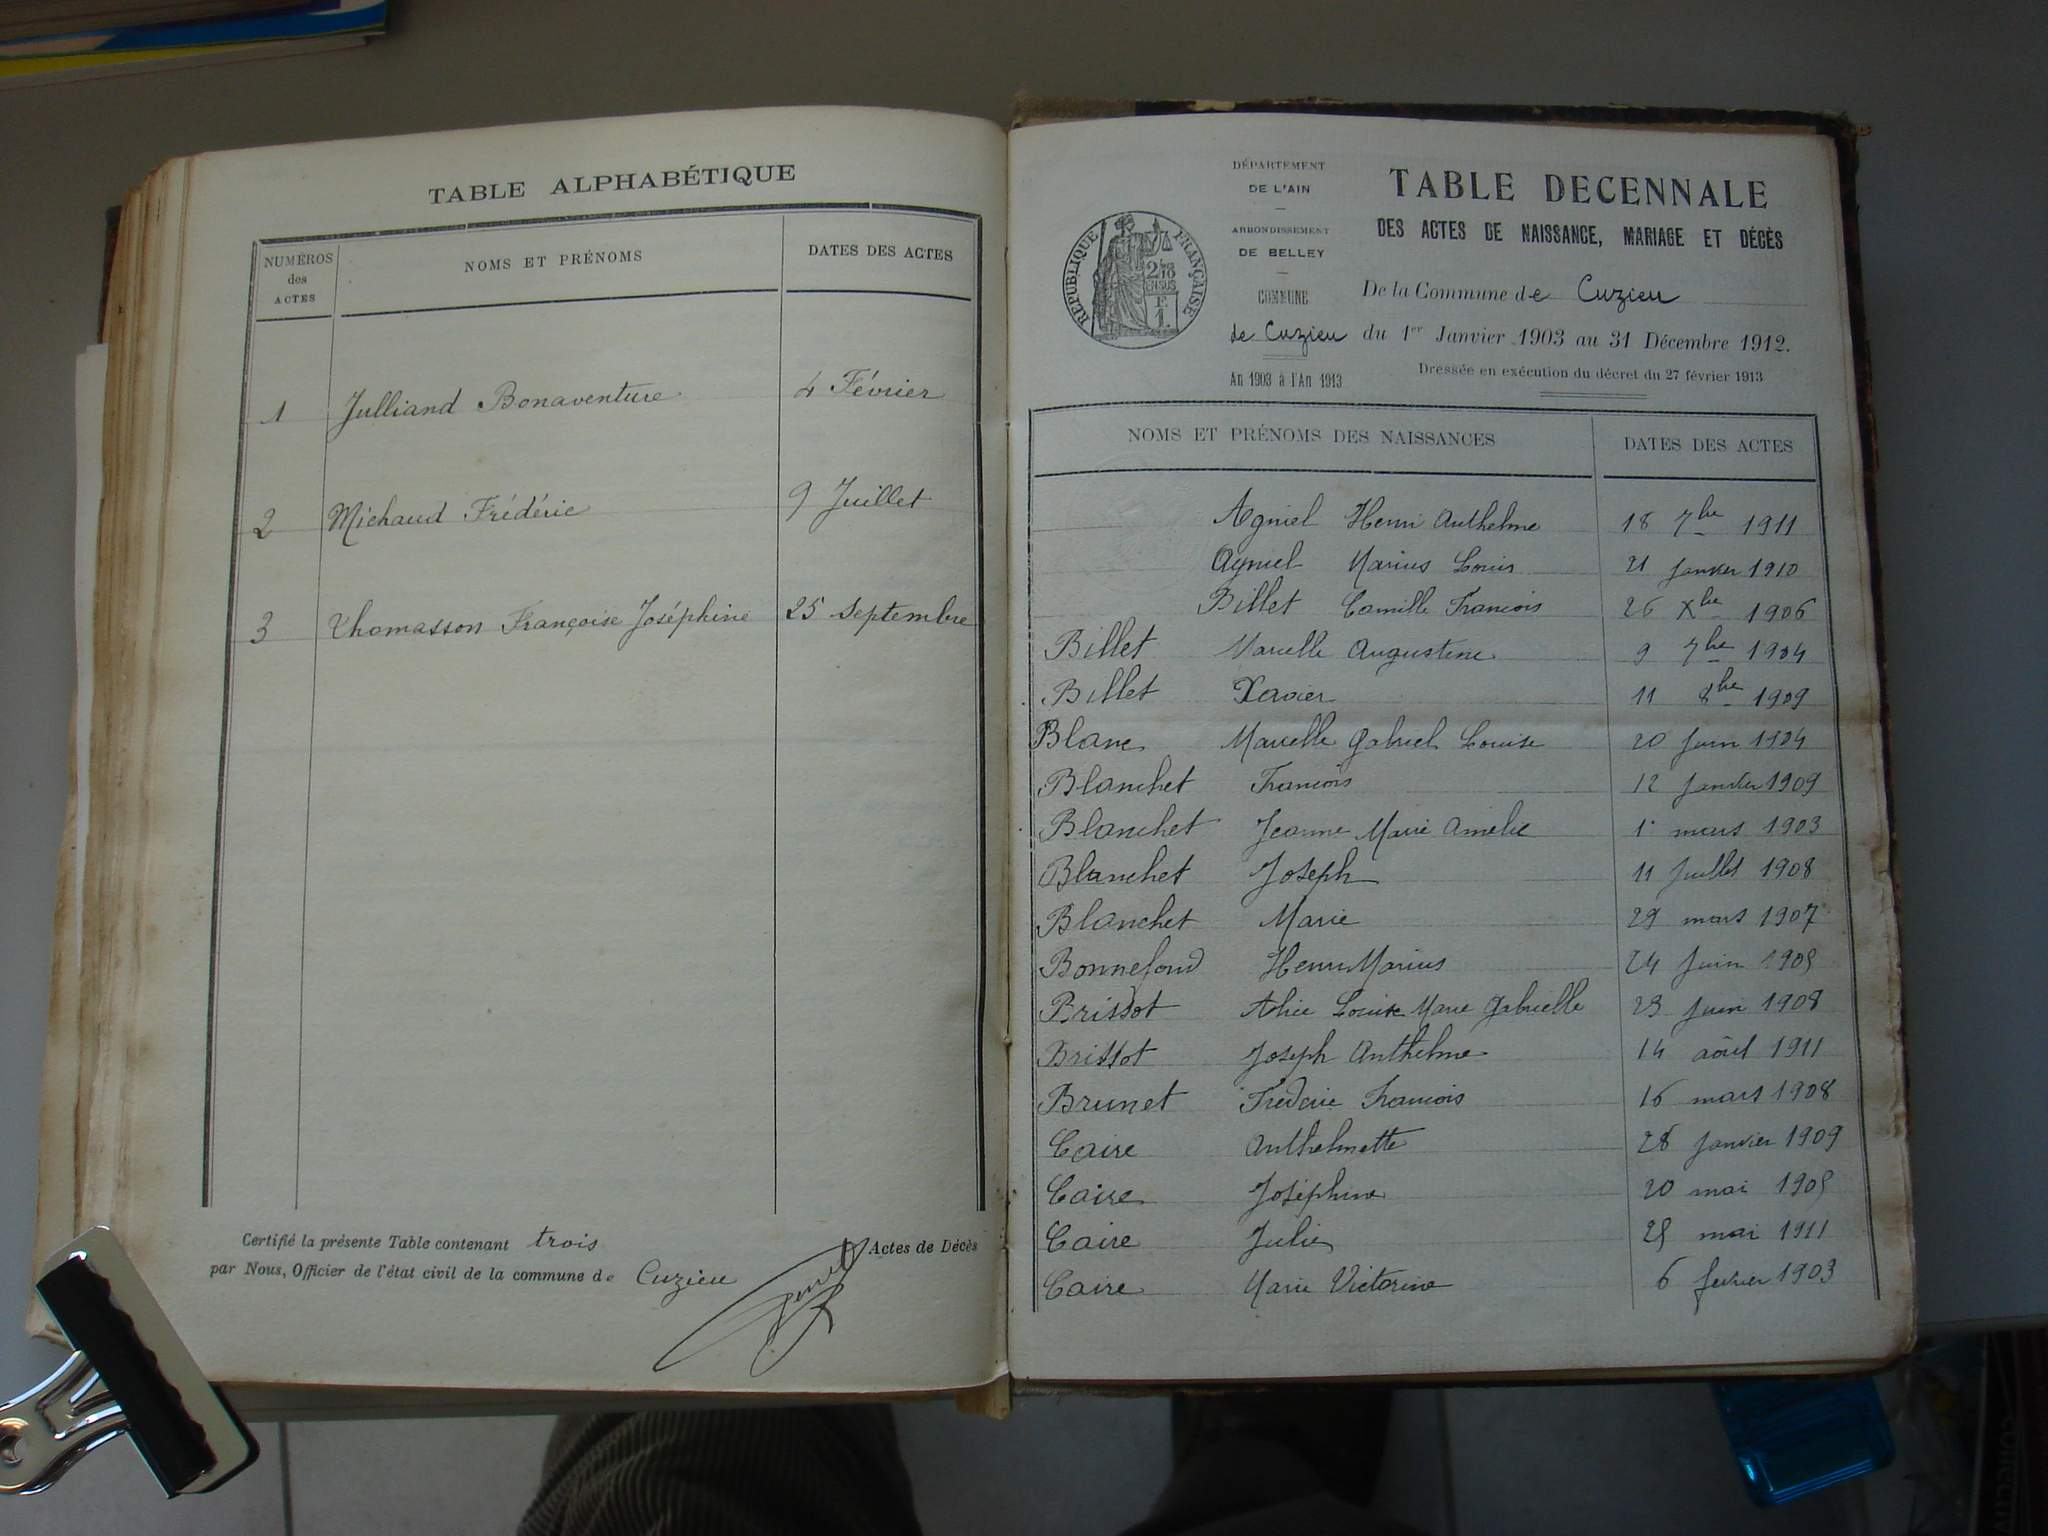 TABLE ALPHABÉTIQUE
NUMÉROS des ACTES
NOMS ET PRÉNOMS
DATES DES ACTES
1 Julliand Bonaventure 4 Février
2 Michaud Frédéric 9 Juillet
3 Thomasson Françoise Joséphine 25 Septembre
Certifié la présente Table contenant trois Actes de Décès
par Nous, Officier de l'état civil de la commune de Cuzieu
DÉPARTEMENT
DE L'AIN
ARRONDISSEMENT
DE BELLEY
COMMUNE
de Cuzieu
An 1903 à l'An 1913
RÉPUBLIQUE FRANÇAISE
TABLE DECENNALE
DES ACTES DE NAISSANCE, MARIAGE ET DÉCÈS
De la Commune de Cuzieu
du 1er Janvier 1903 au 31 Décembre 1912.
Dressée en exécution du décret du 27 février 1913
NOMS ET PRÉNOMS DES NAISSANCES DATES DES ACTES
Agniel Henri Anthelme 18 7bre 1911
Agniel Marius Louis 21 janvier 1910
Billet Camille Francois 26 Xbre 1906
Billet Marcelle Augustine 9 7bre 1904
Billet Xavier 11 8bre 1909
Blanc Marcelle Gabriel Louise 20 Juin 1904
Blanchet Francois 12 Janvier 1909
Blanchet Jeanne Marie Amelie 1r mars 1903
Blanchet Joseph 11 Juillet 1908
Blanchet Marie 29 mars 1907
Bonnefond Henri Marius 24 Juin 1905
Brissot Alice Louise Marie Gabrielle 23 Juin 1908
Brissot Joseph Anthelme 14 aôut 1911
Brunet Frederic Francois 16 mars 1908
Caire Anthelmette 28 janvier 1909
Caire Joséphine 20 mai 1905
Caire Julie 25 mai 1911
Caire Marie Victorine 6 fevrier 1903